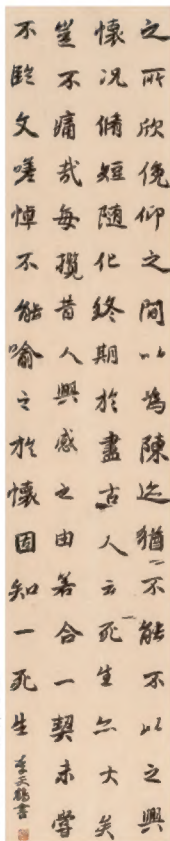 之所欣俛仰之間以爲陳迹猶不能不以之興
懷況脩短隨化終期於盡古人云死生亦大矣
豈不痛哉每攬昔人興感之由若合一契未嘗
不臨文嗟悼不能喻之於懷固知一死生
李天鶴書